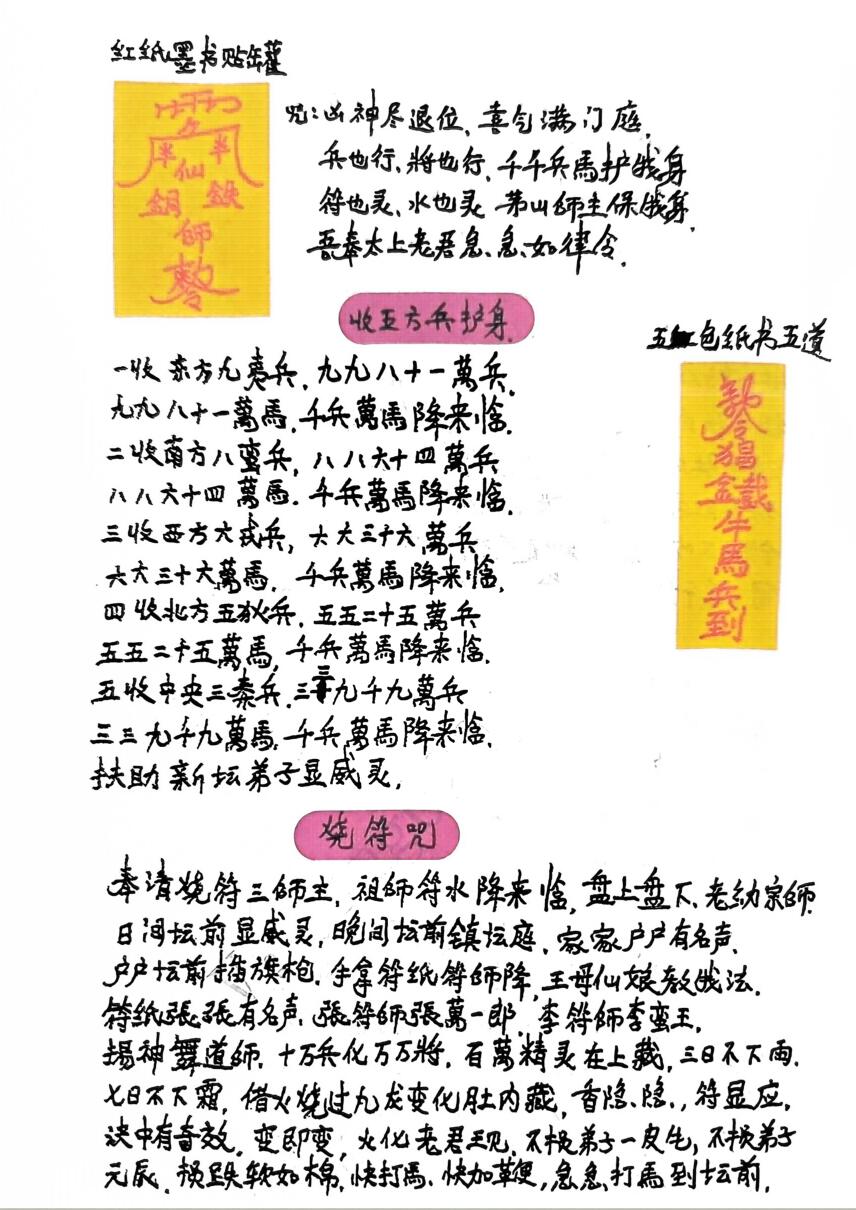 红纸墨书贴缸罐
半 半
仙
銅 鉄
師
敕令
咒:凶神尽退位、喜气满门庭,
兵也行、將也行、千千兵馬护我身
符也灵、水也灵 茅山師主保我身,
吾奉太上老君急、急、如律令,
收五方兵护身
五包纸书五道
敕令猖金鐵牛馬兵到
一收东方九夷兵,九九八十一萬兵,
九九八十一萬馬,千兵萬馬降来临,
二收南方八蛮兵,八八六十四萬兵
八八六十四萬馬.千兵萬馬降来临,
三收西方六戎兵,六六三十六萬兵
六六三十六萬馬,千兵萬馬降来临,
四收北方五狄兵,五五二十五萬兵
五五二十五萬馬,千兵萬馬降来临,
五收中央三秦兵,三三九千九萬兵
三三九千九萬馬,千兵萬馬降来临,
扶助新坛弟子显威灵,
烧符咒
奉请烧符三師主,祖師符水降来临,盘上盘下、老幼宗師,
日间坛前显威灵,晚间坛前鎮坛庭、家家户户有名声,
户户坛前插旗枪、手拿符纸符師降,王母仙娘教我法.
符纸張張有名声、張符師張萬一郎、李符師李蛮王,
揚神舞道師、十万兵化万万將,百萬精灵在上藏,三日不下雨,
七日不下霜,借火烧过九龙变化肚内藏,香隐、隐、,符显应,
决中有奇效,变即变,火化老君现,不损弟子一皮毛,不损弟子
元辰、损跌软如棉,快打馬、快加鞭,急急、打馬到坛前,